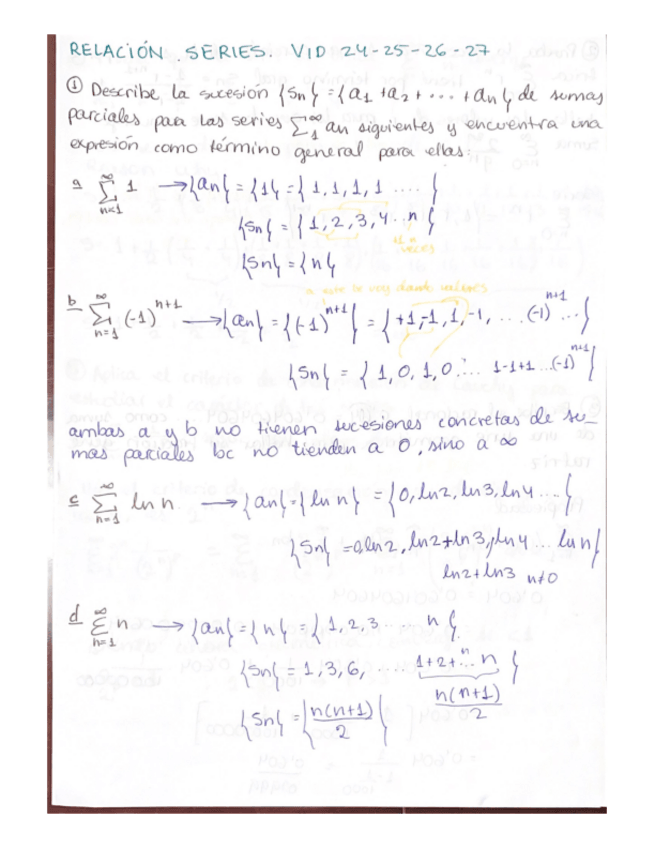 RELACIÓN SERIES. VID 24-25-26-27
① Describe la sucesión {Sn} = {a₁ + a₂ + ... + an} de sumas
parciales para las series ∑₁^∞ an siguientes y encuentra una
expresión como término general para ellas:
a ∑_{n=1}^∞ 1 → {an} = {1} = {1, 1, 1, 1 ....}
{Sn} = {1, 2, 3, 4 .. n}
veces
{Sn} = {n}
a este le voy dando valores
b ∑_{n=1}^∞ (-1)^{n+1} → {an} = {(-1)^{n+1}} = {+1, -1, 1, -1, ... (-1)^{n+1} ...}
{Sn} = {1, 0, 1, 0 ... 1-1+1 ...(-1)^{n+1}}
ambas a y b no tienen sucesiones concretas de su-
mas parciales bc no tienden a 0, sino a ∞
c ∑_{n=1}^∞ ln n → {an} = {ln n} = {0, ln2, ln3, ln4 ...}
{Sn} = 0 ln2, ln2+ln3, ln4 ... ln n}
ln2 + ln3 n≠0
d ∑_{n=1}^∞ n → {an} = {n} = {1, 2, 3 ... n}
{Sn} = 1, 3, 6, ... 1+2+...n}
n(n+1)/2
{Sn} = {n(n+1)/2}